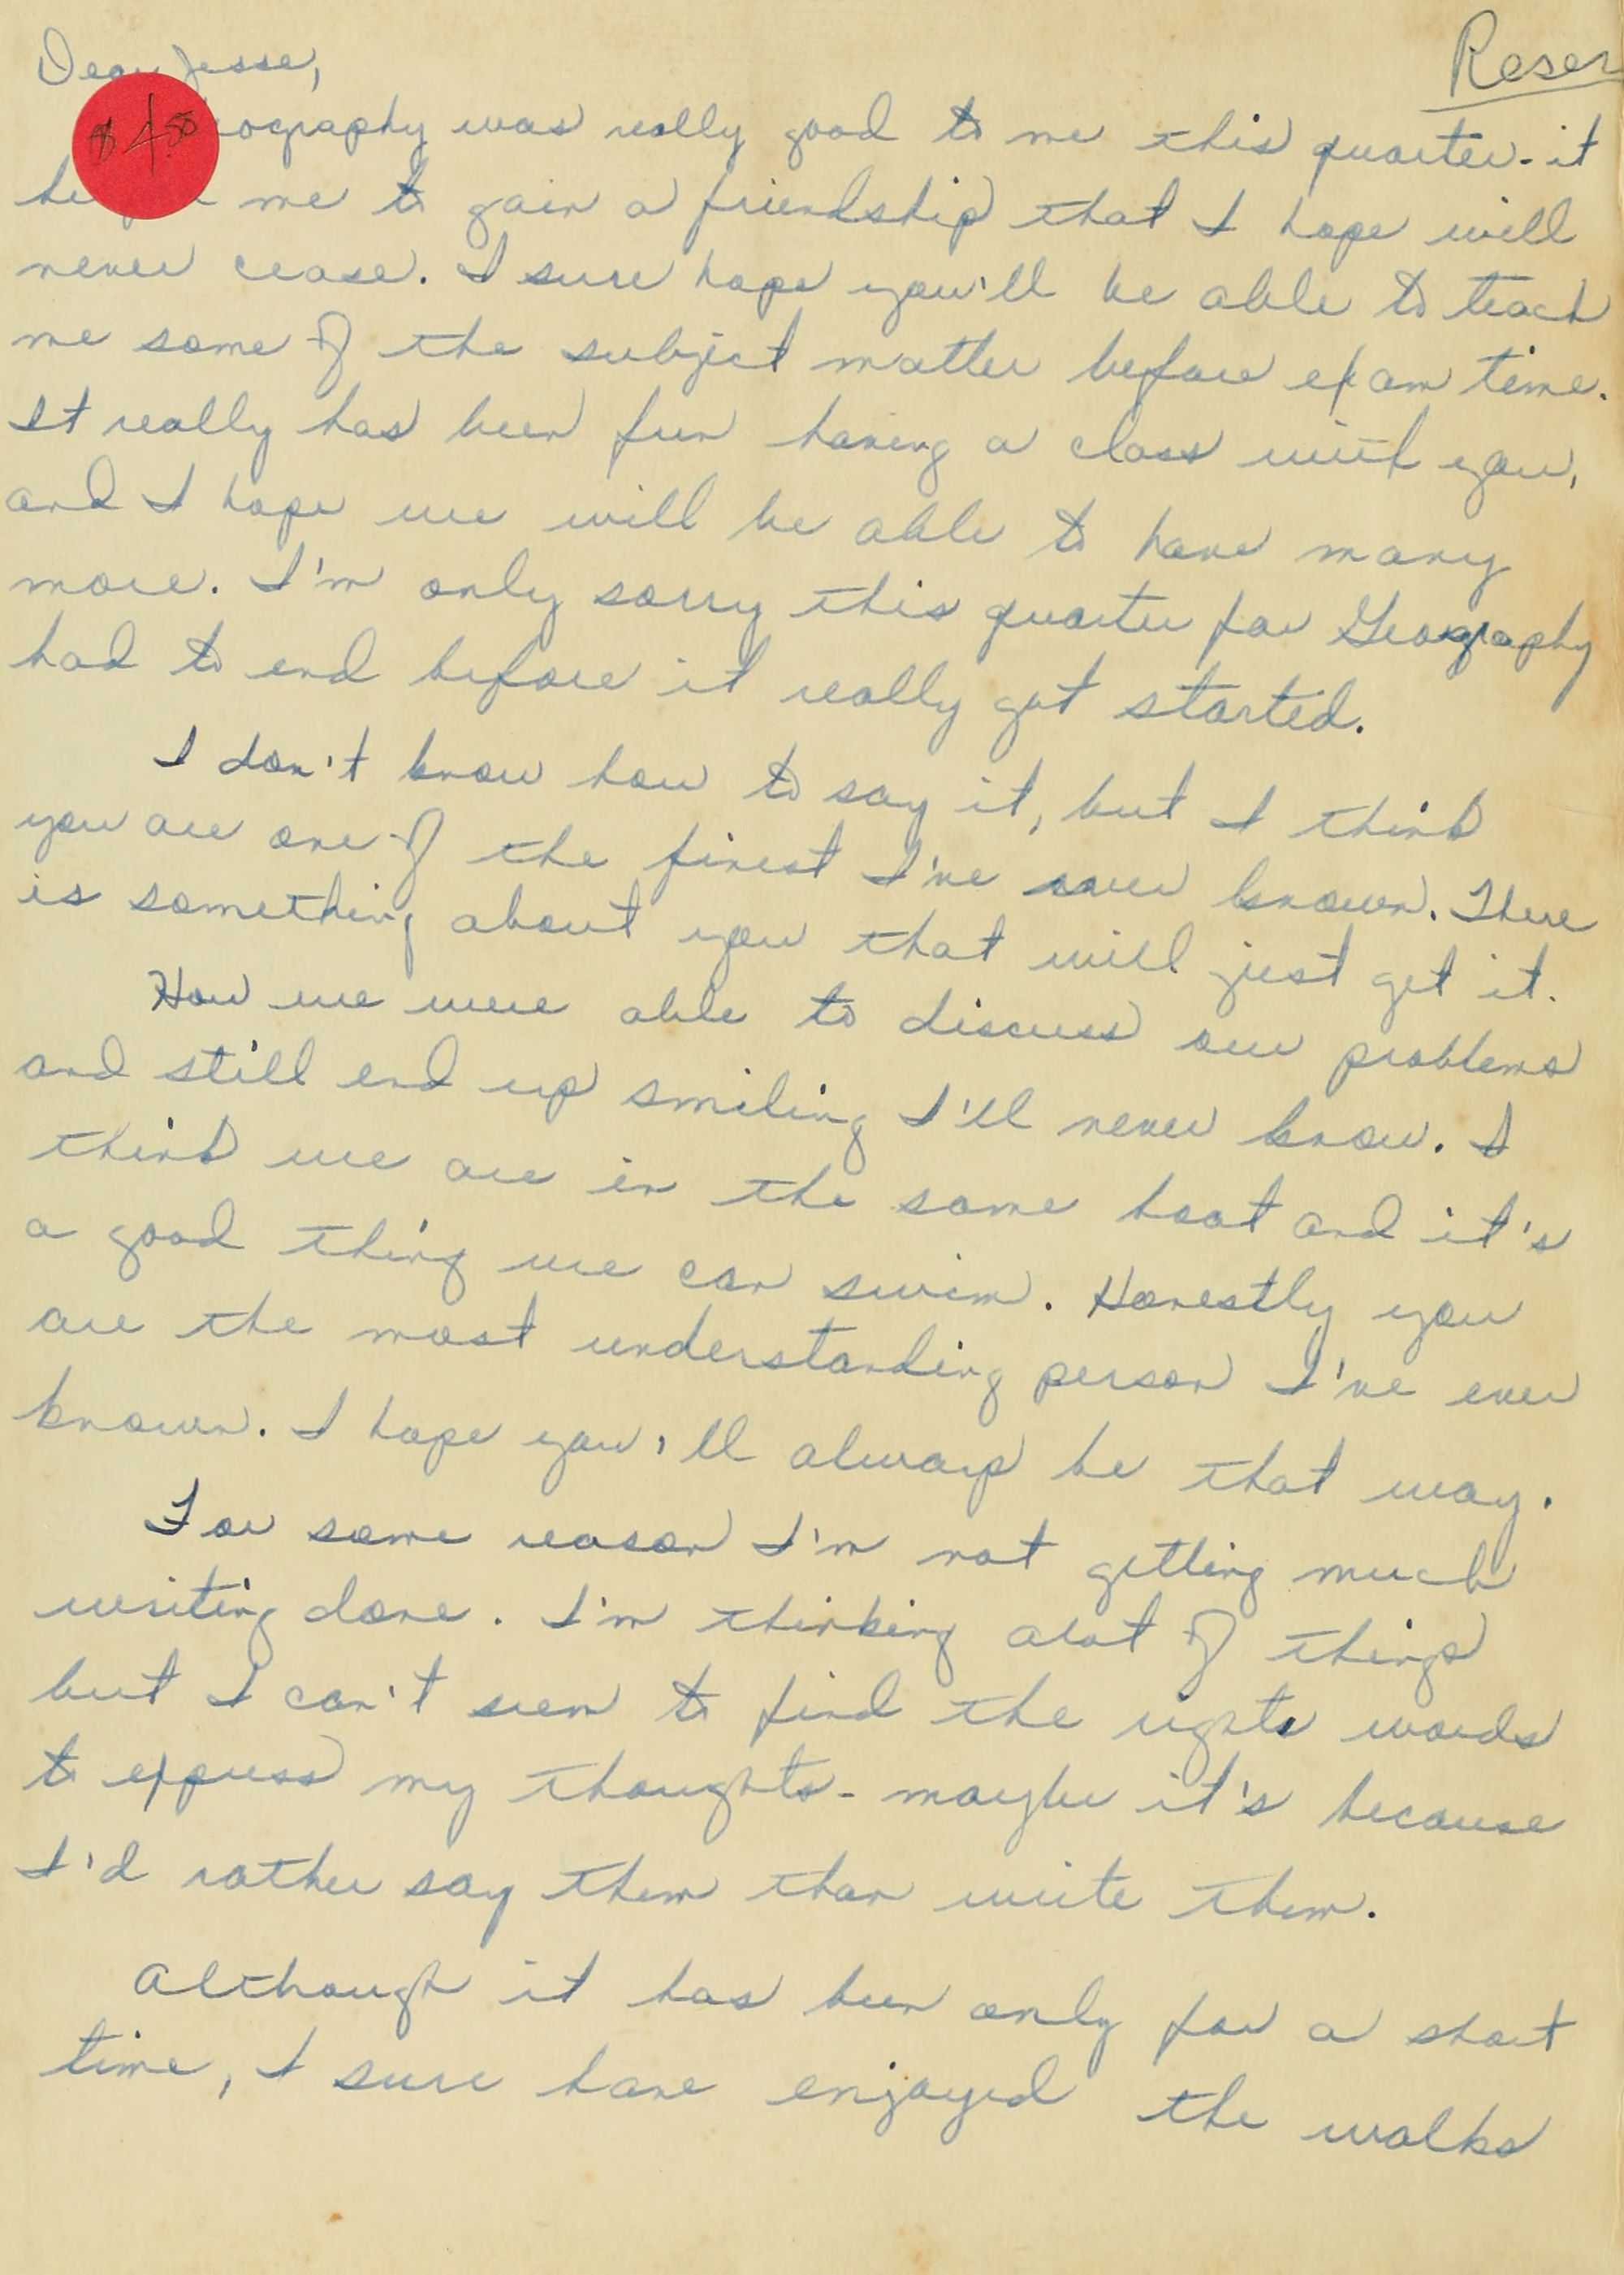 Dear Jesse,
Reser
$4.50
ography was really good to me this quarter - it
me to gain a friendship that I hope will
never cease. I sure hope you'll be able to teach
me some of the subject matter before exam time.
It really has been fun having a class with you,
and I hope we will be able to have many
more. I'm only sorry this quarter for Geography
had to end before it really got started.
I don't know how to say it, but I think
you are one of the finest I've ever known. There
is something about you that will just get it.
How we were able to discuss our problems
and still end up smiling I'll never know. I
think we are in the same boat and it's
a good thing we can swim. Honestly you
are the most understanding person I've ever
known. I hope you'll always be that way.
For some reason I'm not getting much
writing done. I'm thinking alot of things
but I can't seem to find the rights words
to express my thoughts - maybe it's because
I'd rather say them than write them.
Although it has been only for a short
time, I sure have enjoyed the walks